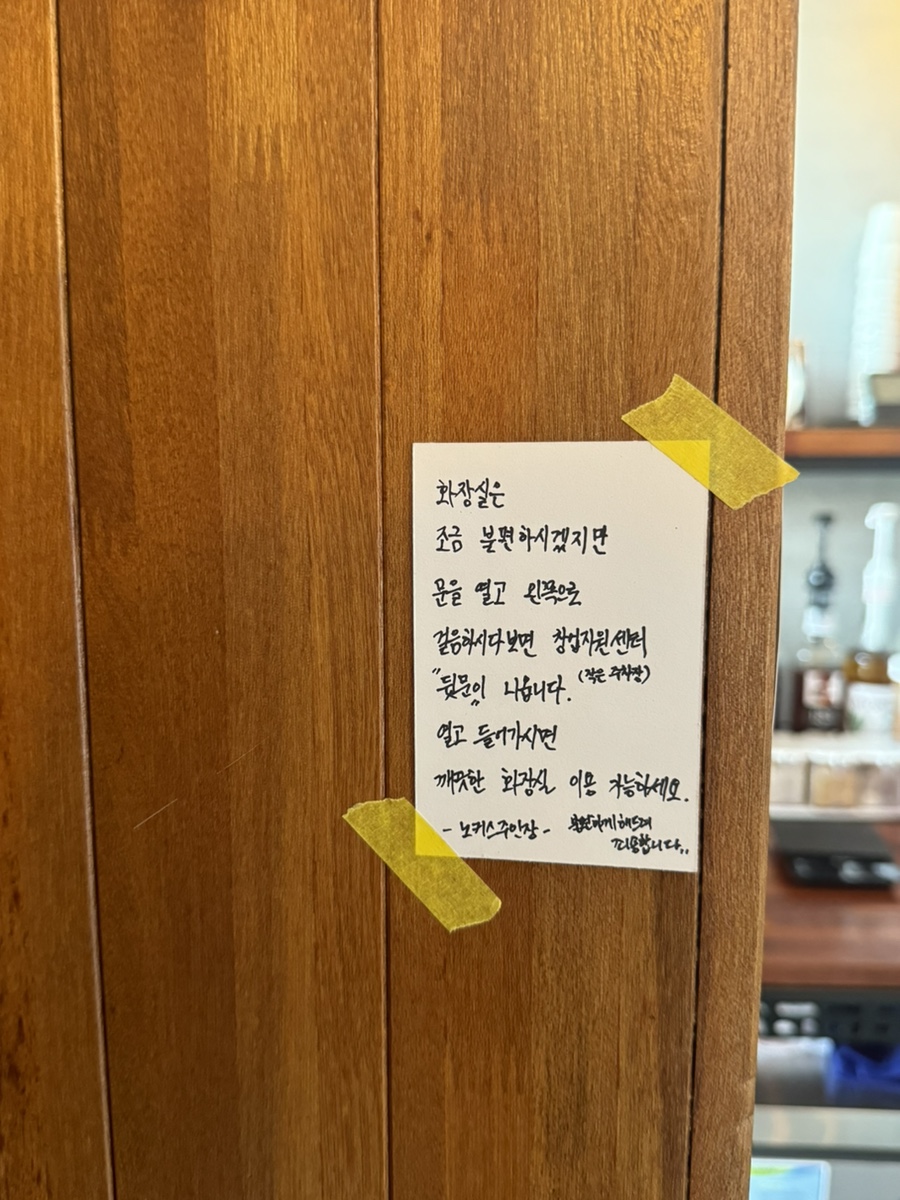 화장실은
조금 불편하시겠지만
문을 열고 왼쪽으로
걸음하시다보면 창업지원센터
"뒷문"이 나옵니다. (작은 주차장)
열고 들어가시면
깨끗한 화장실 이용 가능하세요.
- 노커스주인장 - 불편하게해드려
죄송합니다..